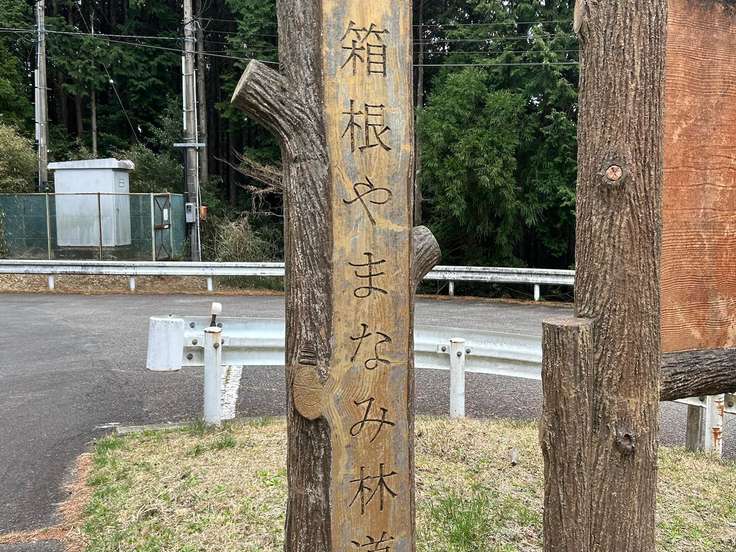 箱根やまなみ林道